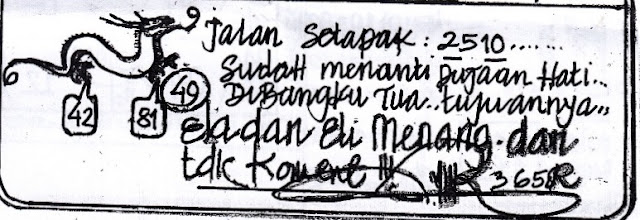 Jalan Setapak : 2510.......
Sudah menanti Pujaan Hati...
DiBangku Tua.. tujuannya,,
Ela dan Eli Menang. dan
tdk Koment !!!
6
9
42
81
49